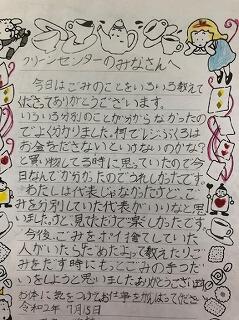 クリーンセンターのみなさんへ
今日はごみのことをいろいろ教えて
くださってありがとうございます。
いろいろ分別のことが分からなかったの
でよく分かりました。何でレジぶくろは
お金をださないといけないのかな?
と買い物してる時に思っていたので今
日なんでか分かったのでうれしかったです。
わたしは代表じゃなかったけど、ご
みを分別していた代表がいいなと思
いました。けど、見ただけで楽しかったです。
今後、ごみをポイ捨てしていた
人がいたらだめよって教えたりご
みをだす時にもっとごみの手つだ
いをしようと思いましたありがとうございます
お体に気をつけてお仕事をがんばってください
令和2年7月15日